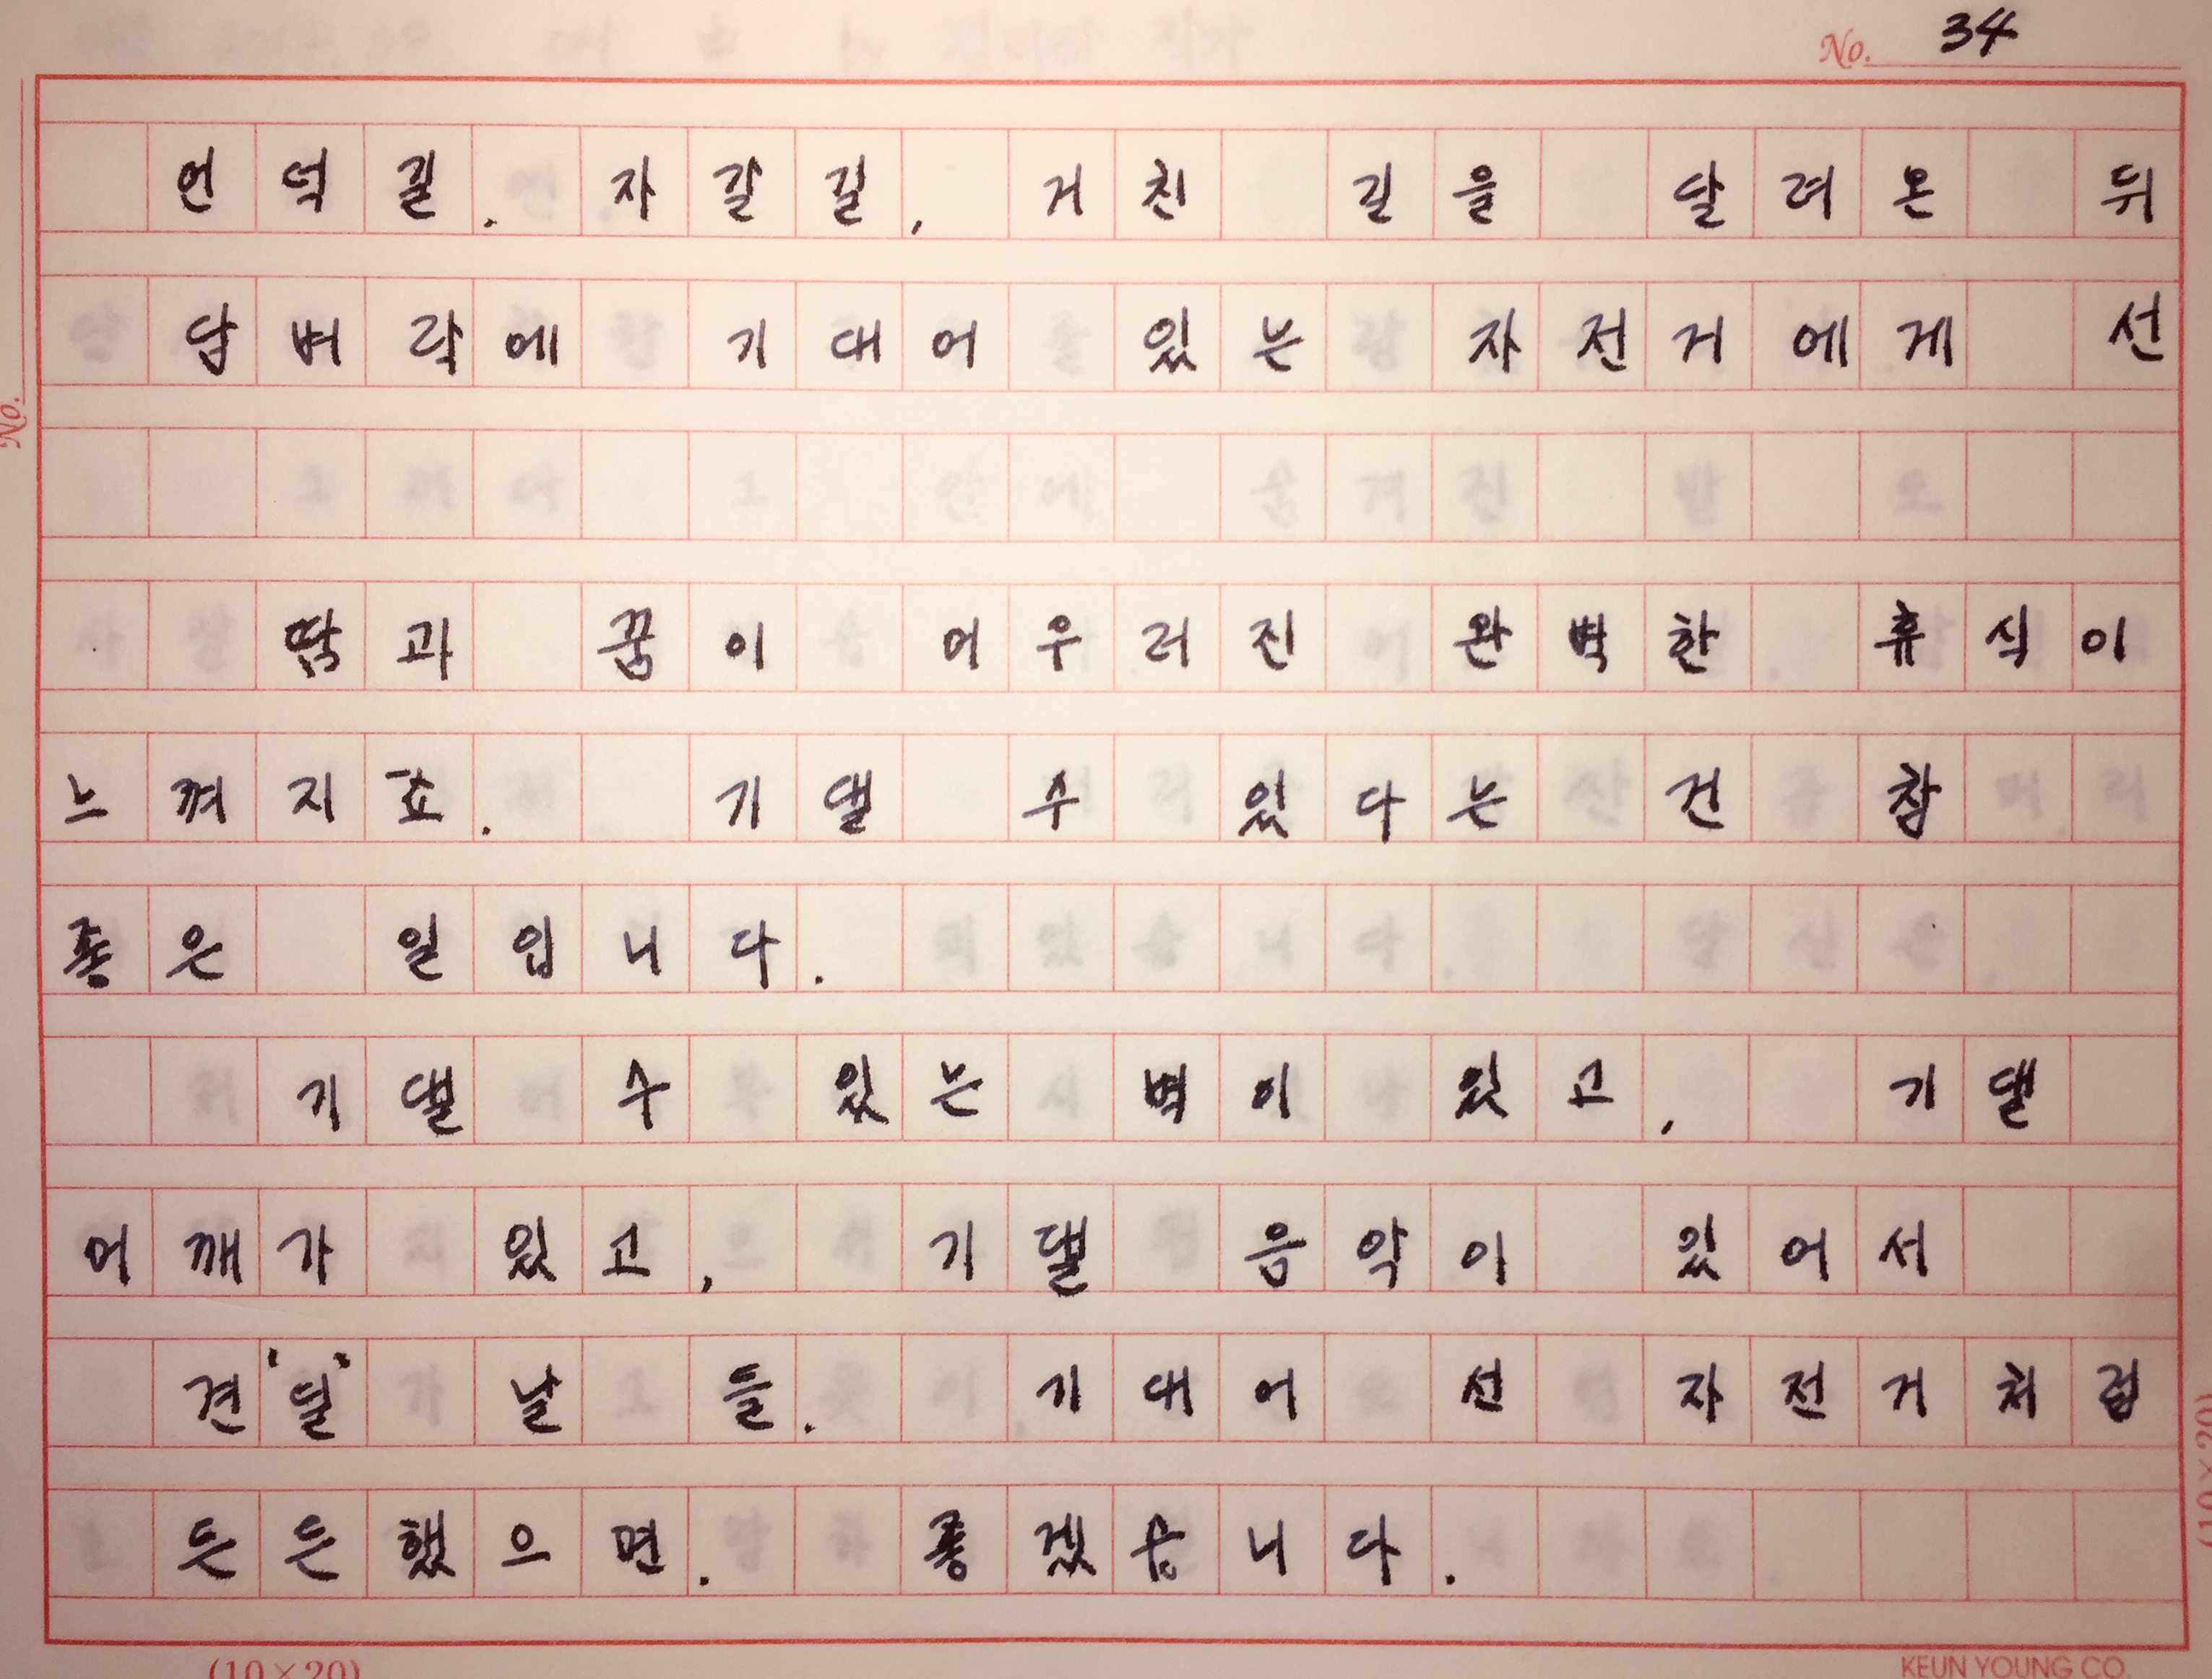 No. 34
언덕길. 자갈길, 거친 길을 달려온 뒤
담벼락에 기대어 있는 자전거에게 선
땀과 꿈이 어우러진 완벽한 휴식이
느껴지죠. 기댈 수 있다는 건 참
좋은 일입니다.
기댈 수 있는 벽이 있고, 기댈
어깨가 있고, 기댈 음악이 있어서
견'딜' 날들. 기대어 선 자전거처럼
든든했으면. 좋겠습니다.
No.
(10×20)
(10×20)
KEUN YOUNG CO.